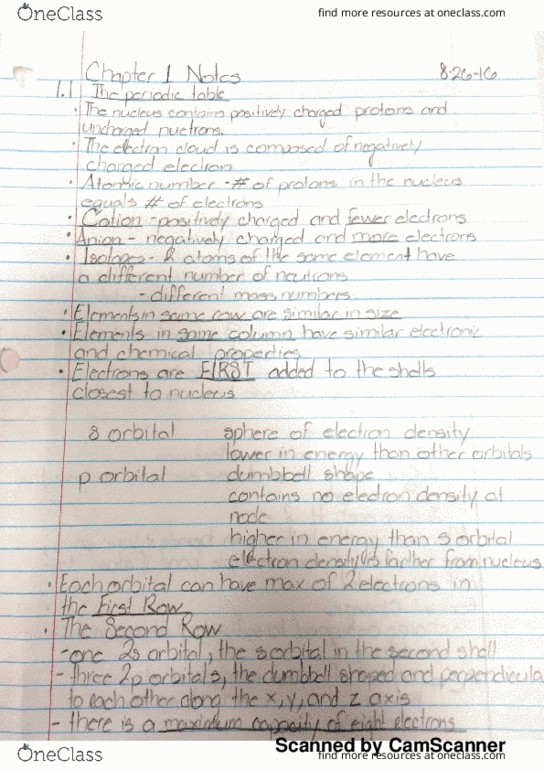 OneClass
find more resources at oneclass.com
Chapter 1 Notes
8-26-16
1.1 The periodic table
• The nucleus contains positively charged protons and
uncharged nuetrons.
• The electron cloud is composed of negatively
charged electron
• Atomic number - # of protons in the nucleus
equals # of electrons
• Cation - positively charged and fewer electrons
• Anion - negatively charged and more electrons
• Isotopes - 2 atoms of the same element have
a different number of neutrons
- different mass numbers
• Elements in same row are similar in size
• Elements in same column have similar electronic
and chemical properties
• Electrons are FIRST added to the shells
closest to nucleus
s orbital sphere of electron density
lower in energy than other orbitals
p orbital dumbbell shape
contains no electron density at
node
higher in energy than s orbital
electron density is farther from nucleus
• Each orbital can have max of 2 electrons in
the First Row
• The Second Row
- one 2s orbital, the s orbital in the second shell
- three 2p orbitals, the dumbbell shaped and perpendicula
to each other along the x, y, and z axis
- there is a maximum capacity of eight electrons
Scanned by CamScanner
OneClass
find more resources at oneclass.com